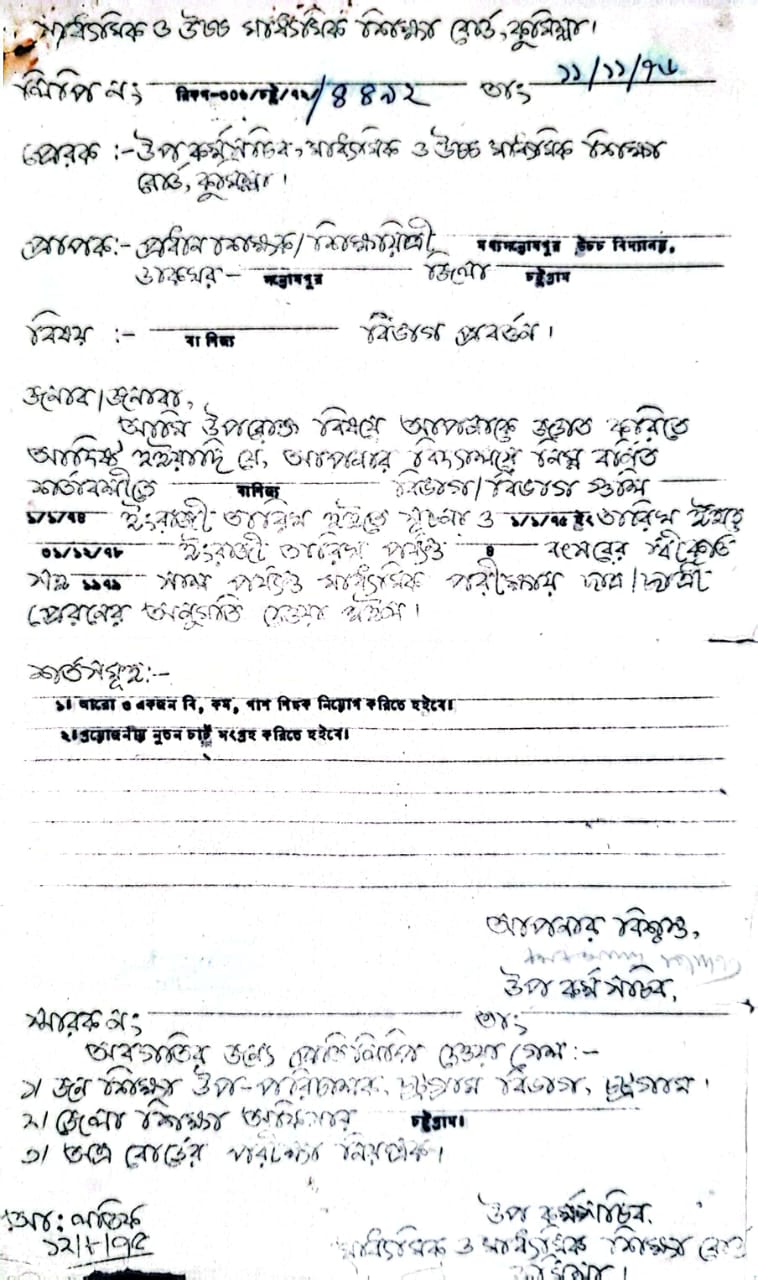 মাধ্যমিক ও উচ্চ মাধ্যমিক শিক্ষা বোর্ড, কুমিল্লা।
লিপি নং /৪৪৯২ তাং ১১/১১/৭৬
প্রেরক :- উপ কর্মসচিব, মাধ্যমিক ও উচ্চ মাধ্যমিক শিক্ষা
বোর্ড, কুমিল্লা।
প্রাপক:- প্রধান শিক্ষক/শিক্ষয়িত্রী উচ্চ বিদ্যালয়,
ডাকঘর- সন্তোষপুর জিলা চট্টগ্রাম
বিষয় :- বানিজ্য বিভাগ প্রবর্তন।
জনাব/জনাবা,
আমি উপরোক্ত বিষয়ে আপনাকে জ্ঞাত করিতে
আদিষ্ট হইয়াছি যে, আপনার বিদ্যালয়ে নিম্ন বর্ণিত
শর্তাবলীতে বানিজ্য বিভাগ/বিভাগ গুলি
১/১/৭৪ ইংরাজী তারিখ হইতে খুলা ও ১/১/৭৫ ইং তারিখ হইতে
৩১/১২/৭৮ ইংরাজী তারিখ পর্যন্ত ৪ বৎসরের স্বীকৃতি
সহ ১৯৭৯ সাল পর্যন্ত মাধ্যমিক পরীক্ষায় ছাত্র/ছাত্রী
প্রেরনের অনুমতি দেওয়া হইল।
শর্তসমূহ:-
১। আরো ও একজন বি, কম, পাশ শিক্ষক নিয়োগ করিতে হইবে।
২। প্রয়োজনীয় নুতন চার্ট সংগ্রহ করিতে হইবে।
আপনার বিশ্বস্ত,
উপ কর্ম সচিব,
স্মারক নং তাং
অবগতির জন্যে প্রতিলিপি দেওয়া গেল:-
১/ জন শিক্ষা উপ-পরিচালক, চট্টগ্রাম বিভাগ, চট্টগ্রাম।
২/ জেলা শিক্ষা অফিসার চট্টগ্রাম।
৩/ অত্র বোর্ডের পরীক্ষা নিয়ন্ত্রক।
আ: লতিফ উপ কর্মসচিব,
১২/৮/৭৫ মাধ্যমিক ও মাধ্যমিক শিক্ষা বোর্ড
কুমিল্লা।